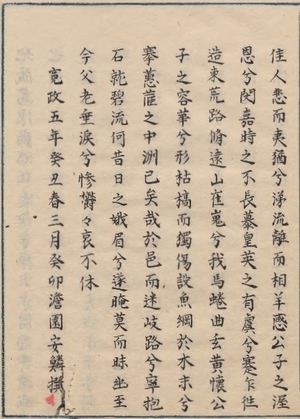 佳人悲而夷猶兮涕流離而相羊慼公子之渥
恩兮閔嘉時之不長慕皇英之有虞兮蹇乍徃
造東荒路脩遠山崔嵬兮我馬蜷曲玄黃懷公
子之容華兮形枯槁而獨傷設魚網於木末兮
搴蕙蓶之中洲已矣哉於邑而迷岐路兮寧抱
石就碧流何昔日之娥眉兮遂晻莫而昧坐至
今父老垂淚兮慘欝々哀不休
寬政五年癸丑春三月癸卯澹園安麟撰